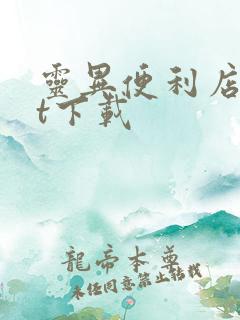 靈異便利店
t下載
龍帝本尊
未任同意禁止轉載